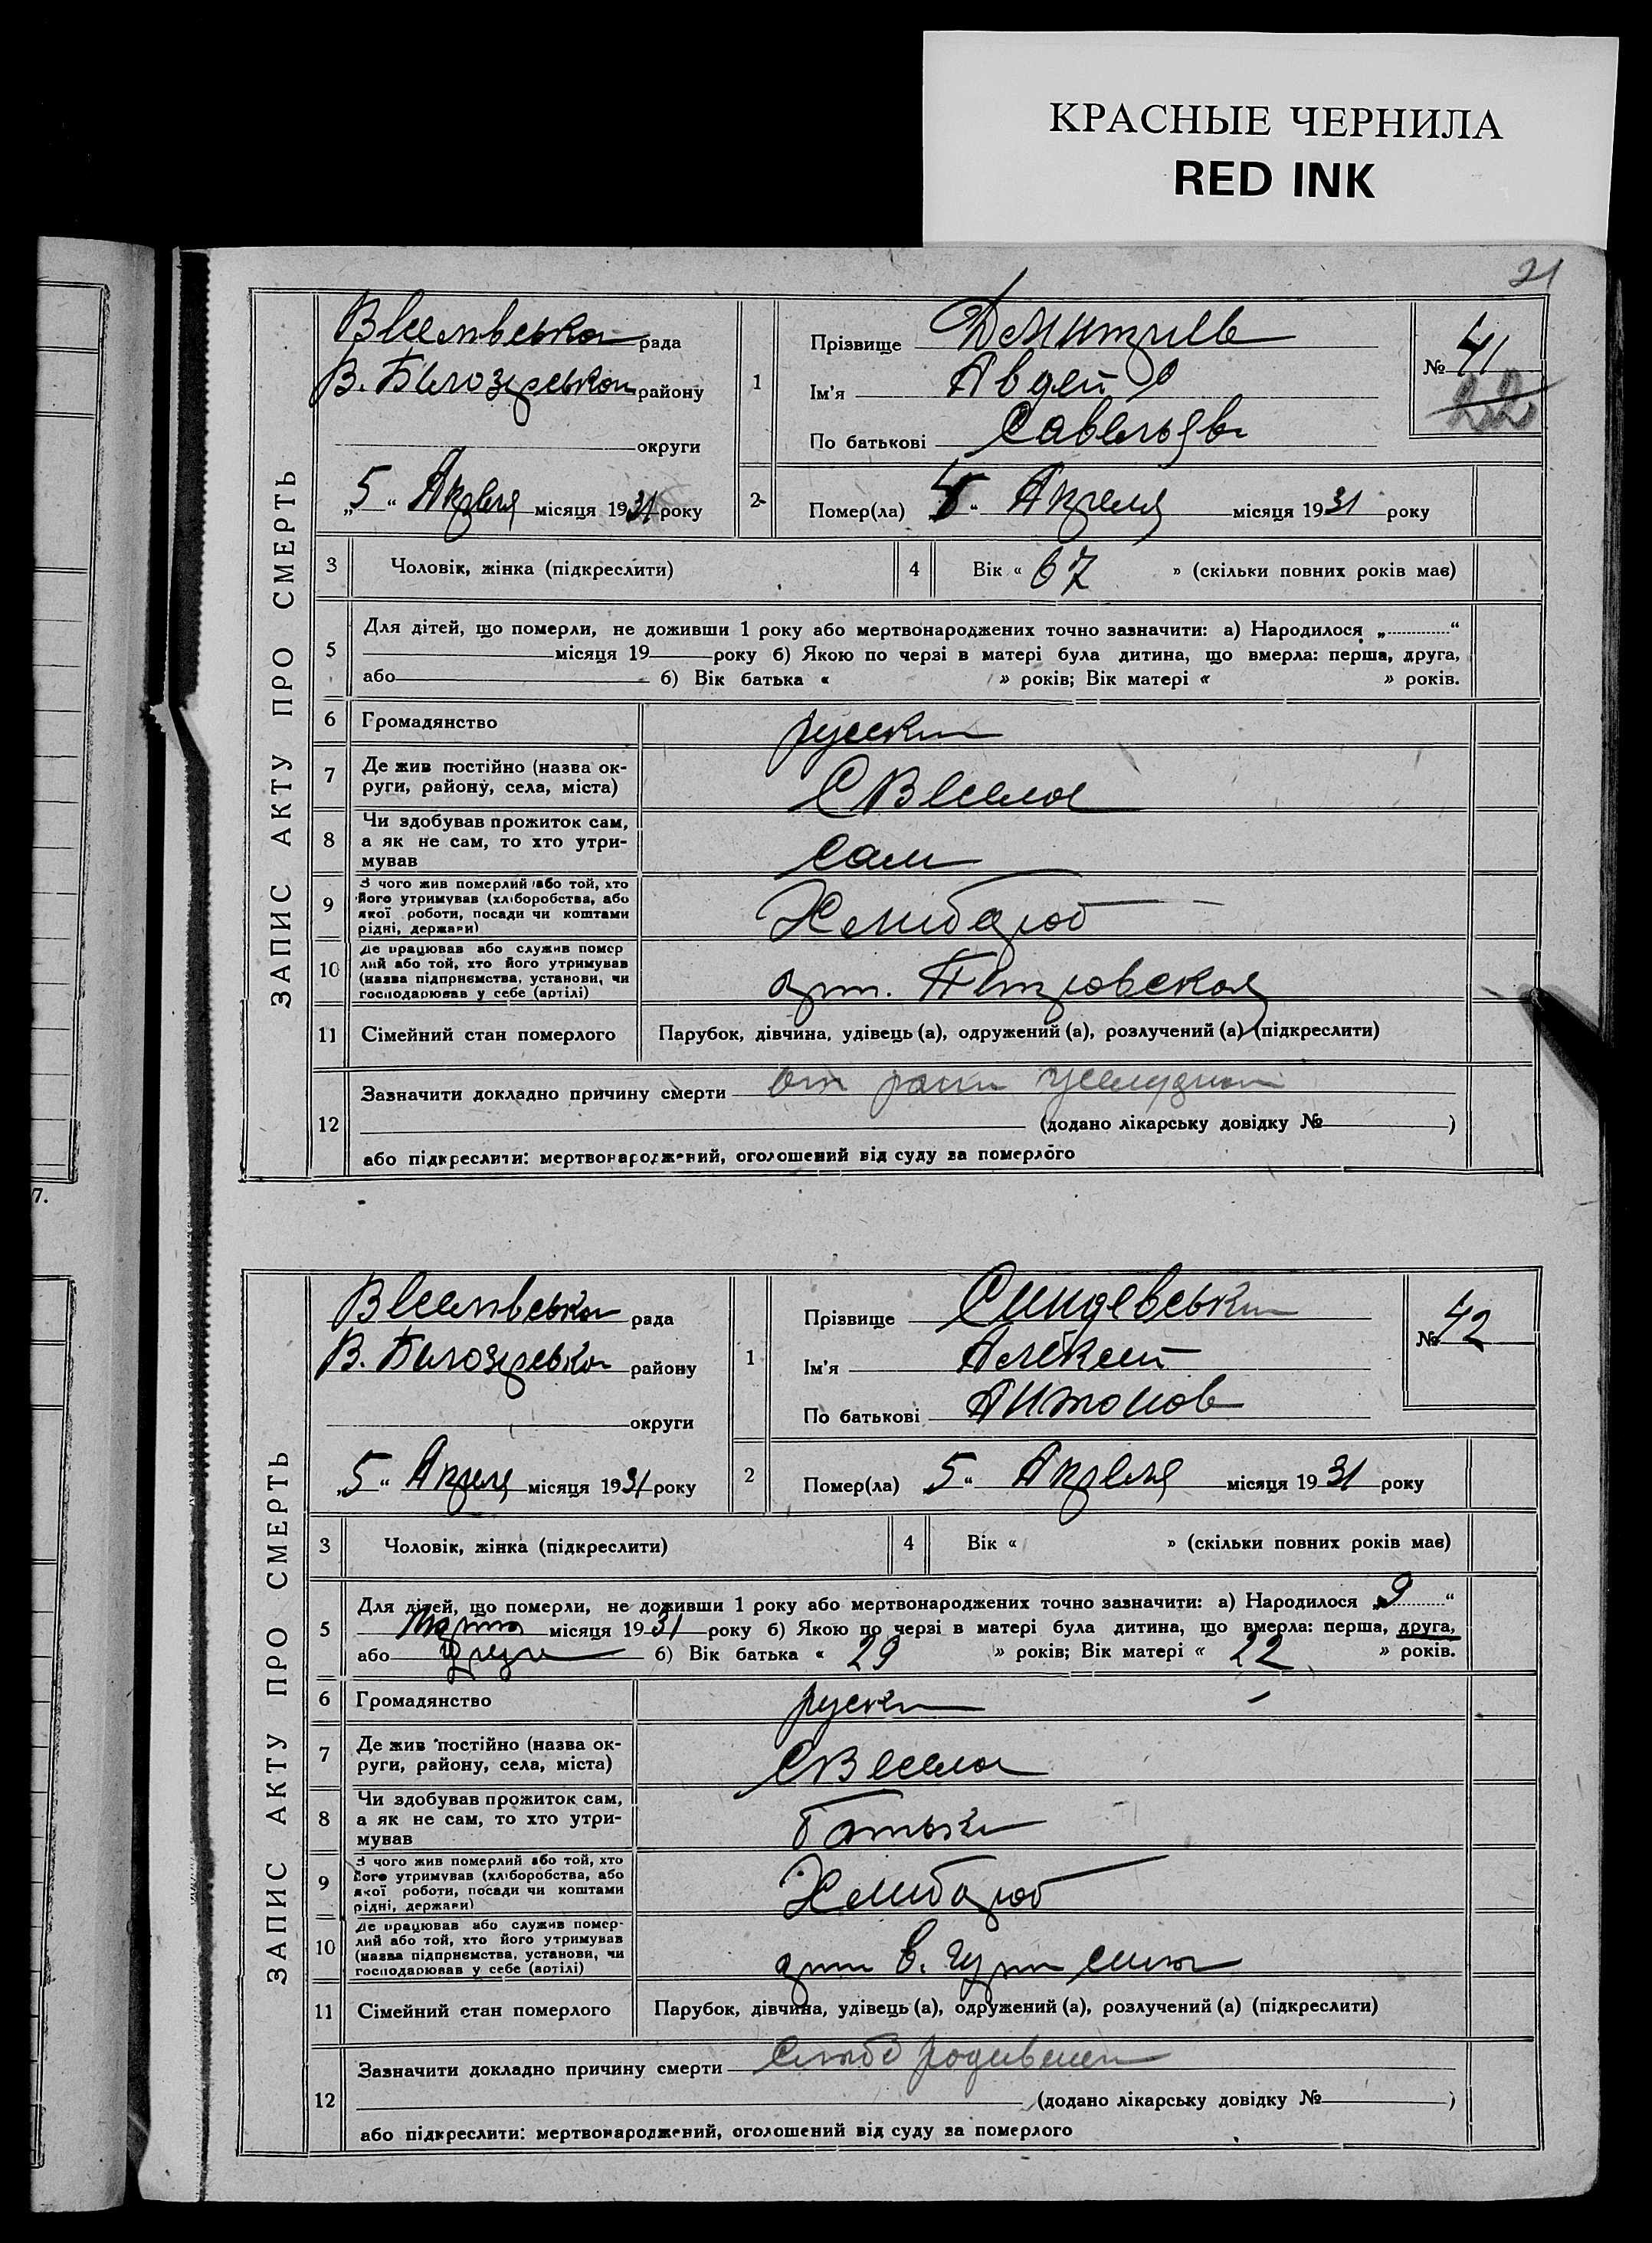 КРАСНЫЕ ЧЕРНИЛА
RED INK
21
ЗАПИС АКТУ ПРО СМЕРТЬ
Веселивська рада
В. Билозерськой району
округи
„5“ Апреля місяця 1931 року
1
Прізвище Дмитриев
Ім'я Авдей
По батькові Савельев
№ 41
22
2
Помер(ла) „4“ Апреля місяця 1931 року
3 Чоловік, жінка (підкреслити)
4 Вік « 67 » (скільки повних років має)
5 Для дітей, що померли, не доживши 1 року або мертвонароджених точно зазначити: а) Народилося „ “
місяця 19 року б) Якою по черзі в матері була дитина, що вмерла: перша, друга,
або б) Вік батька « » років; Вік матері « » років.
6 Громадянство русски
7 Де жив постійно (назва ок-
руги, району, села, міста) С Веселое
8 Чи здобував прожиток сам,
а як не сам, то хто утри-
мував сам
9 З чого жив померлий або той, хто
його утримував (хліборобства, або
якої роботи, посади чи коштами
рідні, держави) Хлибороб
10 Де працював або служив помер
лий або той, хто його утримував
(назва підприємства, установи, чи
господарював у себе (артілі) арт. Петровская
11 Сімейний стан померлого Парубок, дівчина, удівець (а), одружений (а), розлучений (а) (підкреслити)
12 Зазначити докладно причину смерти от раки желудка
(додано лікарську довідку № )
або підкреслити: мертвонароджений, оголошений від суду за померлого
ЗАПИС АКТУ ПРО СМЕРТЬ
Веселивська рада
В. Билозерськой району
округи
„5“ Апреля місяця 1931 року
1
Прізвище
Ім'я Алексей
По батькові Антонов
№ 42
2
Помер(ла) „5“ Апреля місяця 1931 року
3 Чоловік, жінка (підкреслити)
4 Вік « » (скільки повних років має)
5 Для дітей, що померли, не доживши 1 року або мертвонароджених точно зазначити: а) Народилося „9“
Марта місяця 1931 року б) Якою по черзі в матері була дитина, що вмерла: перша, друга,
або б) Вік батька « 29 » років; Вік матері « 22 » років.
6 Громадянство руски
7 Де жив постійно (назва ок-
руги, району, села, міста) С Весела
8 Чи здобував прожиток сам,
а як не сам, то хто утри-
мував батьки
9 З чого жив померлий або той, хто
його утримував (хліборобства, або
якої роботи, посади чи коштами
рідні, держави) Хлибороб
10 Де працював або служив помер-
лий або той, хто його утримував
(назва підприємства, установи, чи
господарював у себе (артілі)
11 Сімейний стан померлого Парубок, дівчина, удівець (а), одружений (а), розлучений (а) (підкреслити)
12 Зазначити докладно причину смерти
(додано лікарську довідку № )
або підкреслити: мертвонароджений, оголошений від суду за померлого
7.